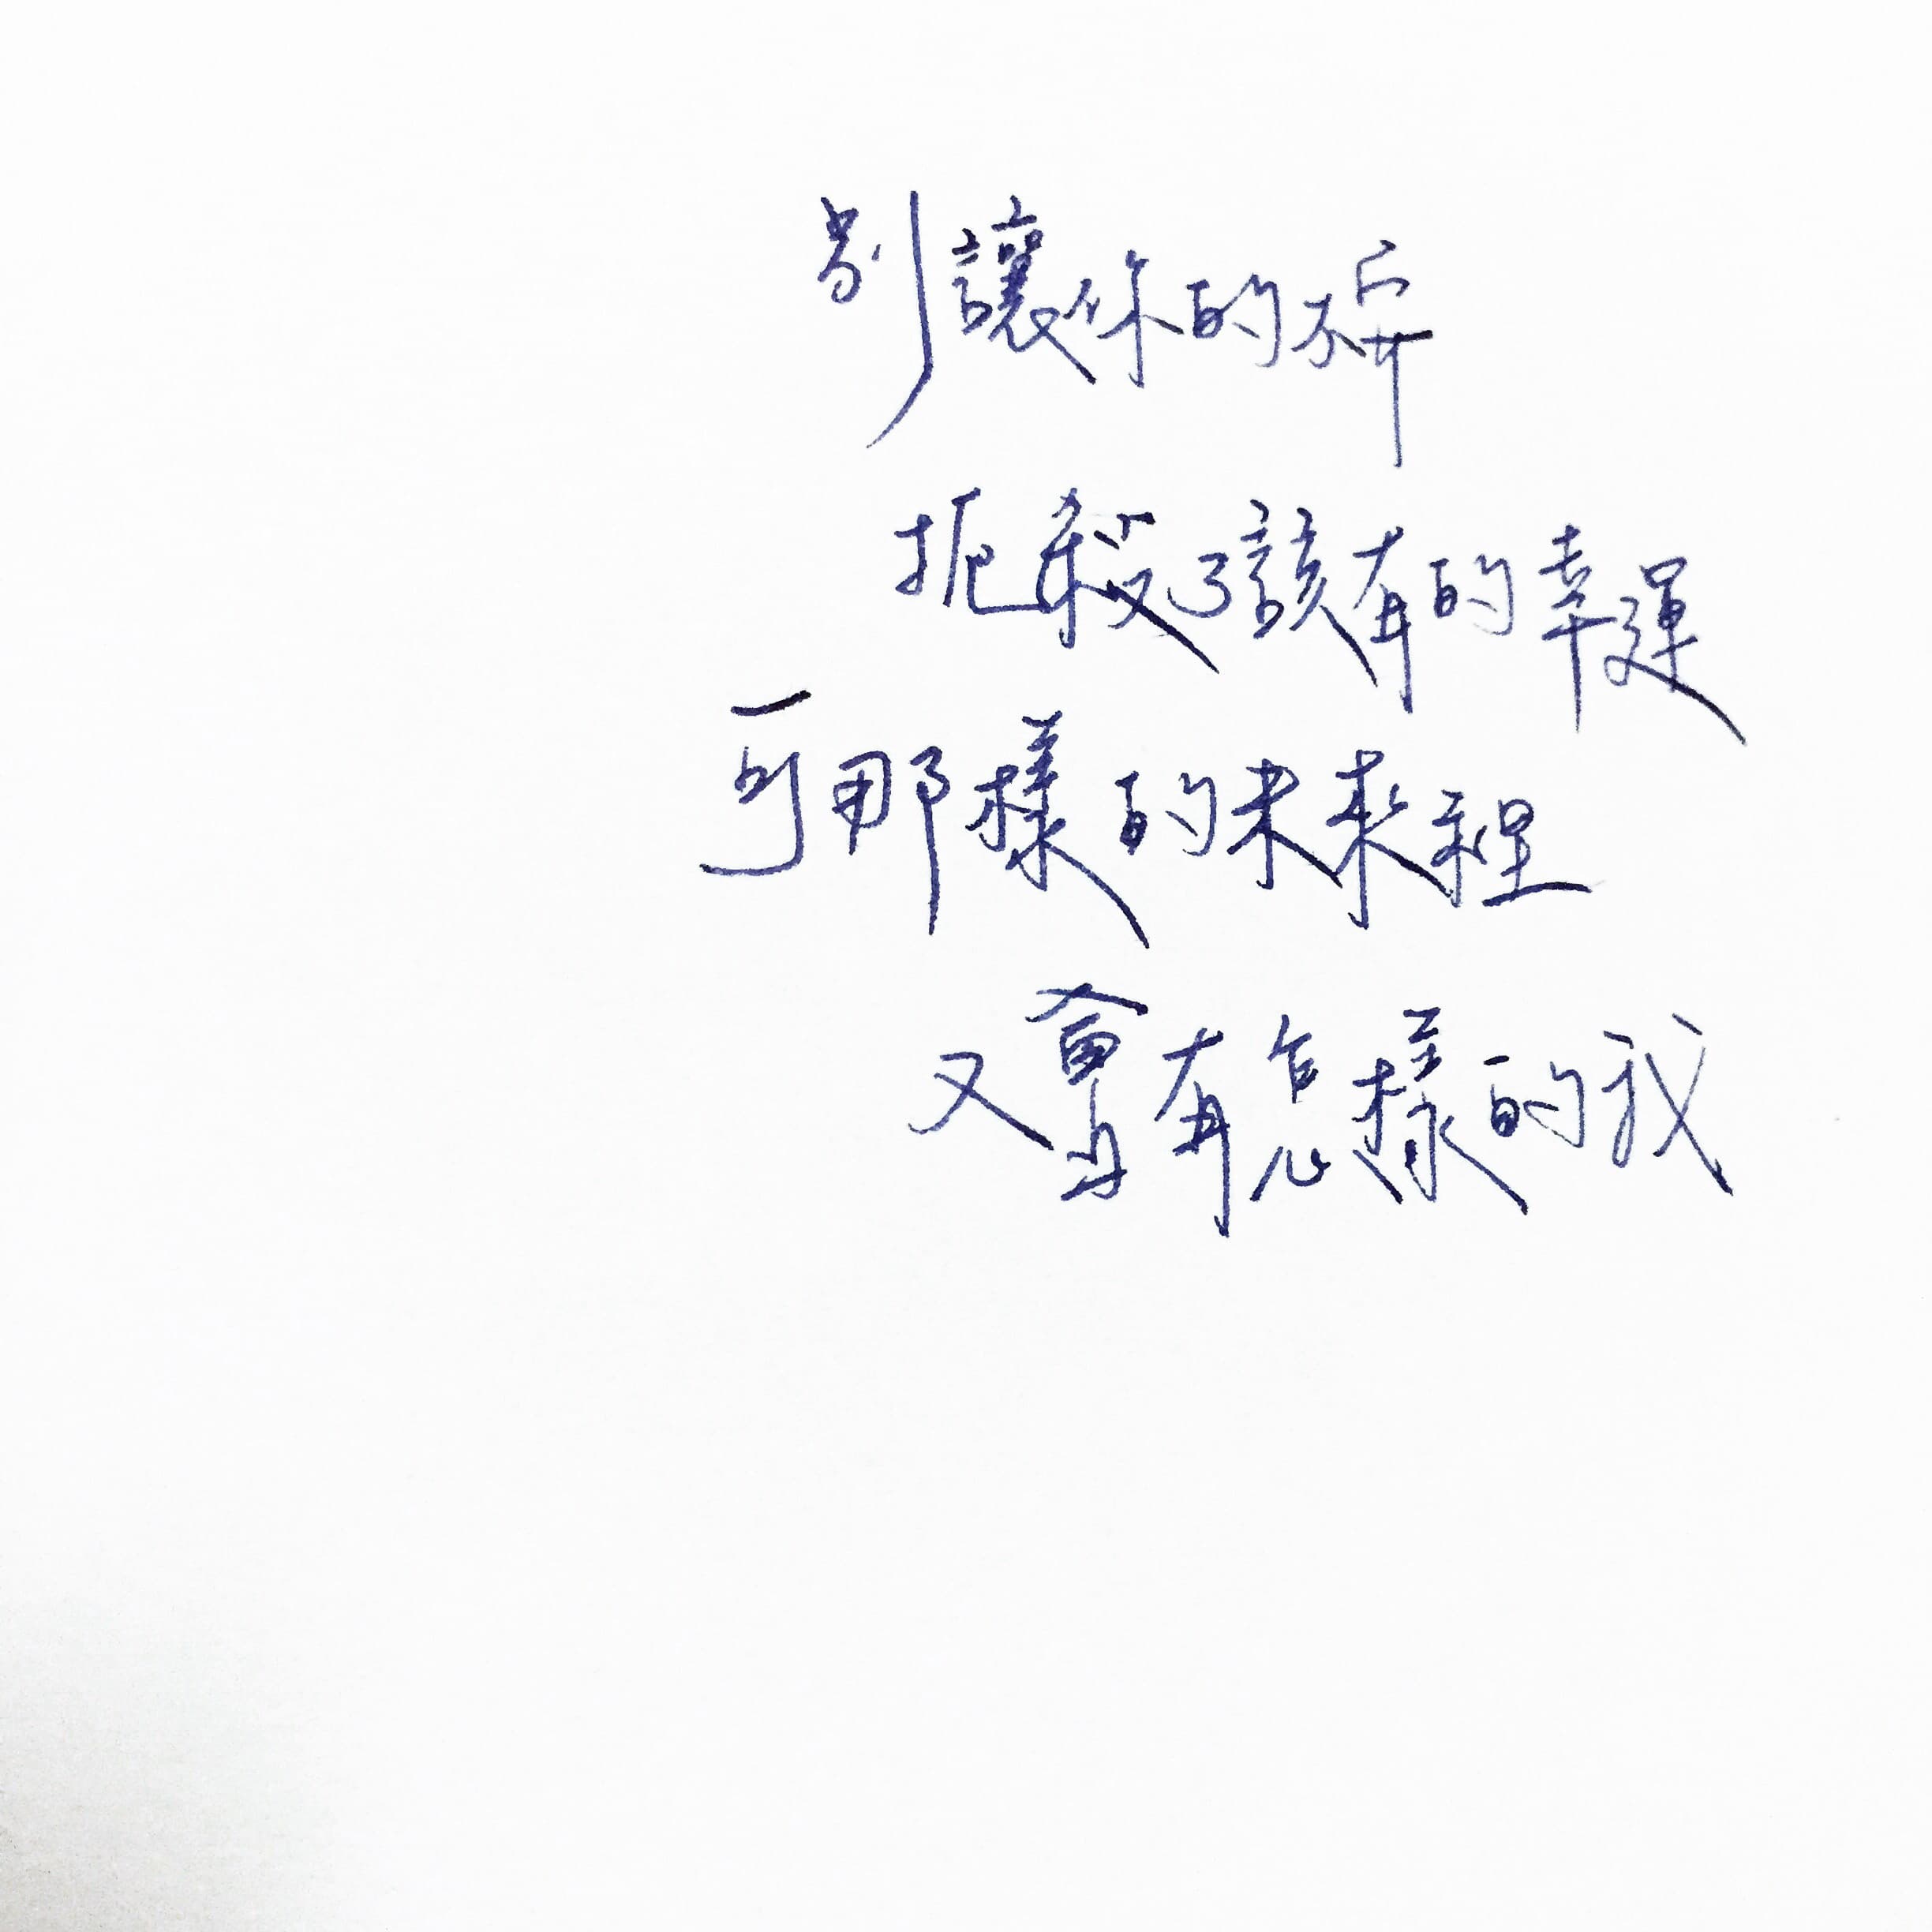 別讓你的
扼殺了該有的幸運
可那樣的未來裡
又會有怎樣的我